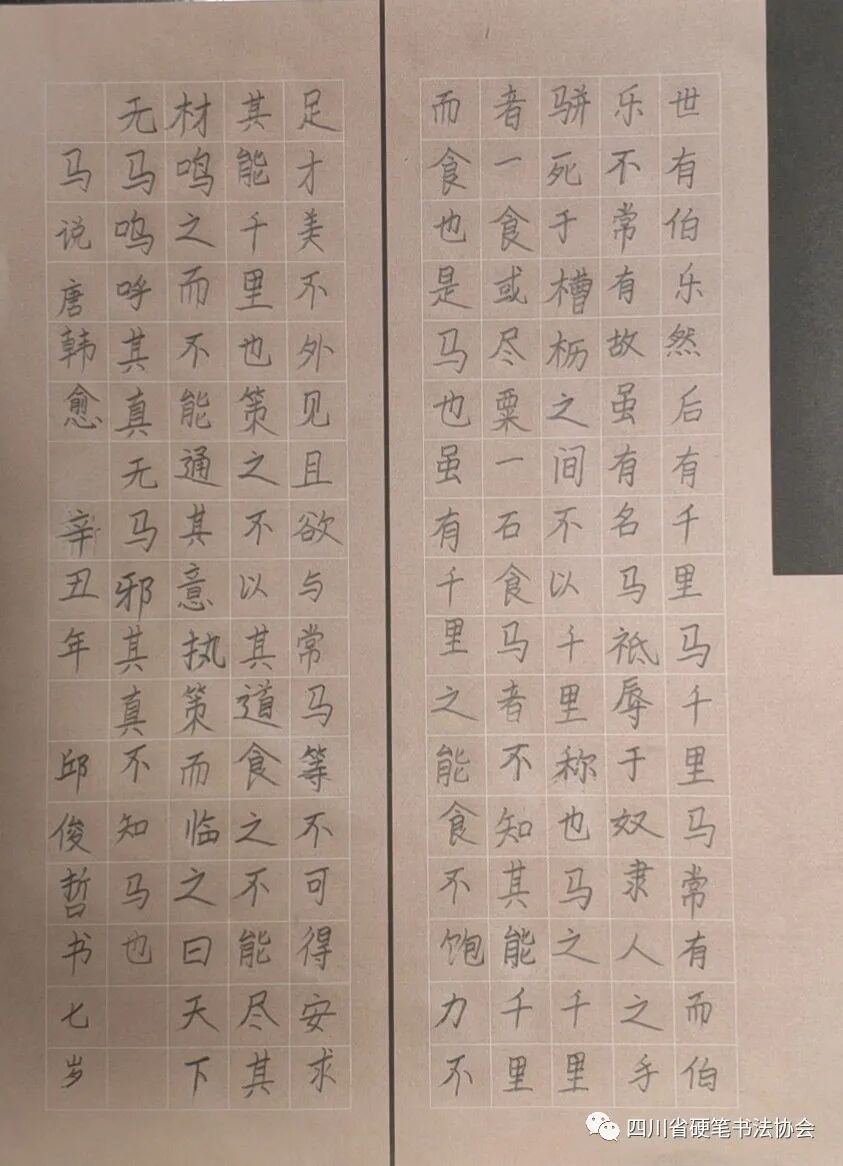 世有伯乐然后有千里马千里马常有而伯
乐不常有故虽有名马祗辱于奴隶人之手
骈死于槽枥之间不以千里称也马之千里
者一食或尽粟一石食马者不知其能千里
而食也是马也虽有千里之能食不饱力不
足才美不外见且欲与常马等不可得安求
其能千里也策之不以其道食之不能尽其
材鸣之而不能通其意执策而临之曰天下
无马呜呼其真无马邪其真不知马也
马说唐韩愈 辛丑年 邱俊哲书七岁
四川省硬笔书法协会